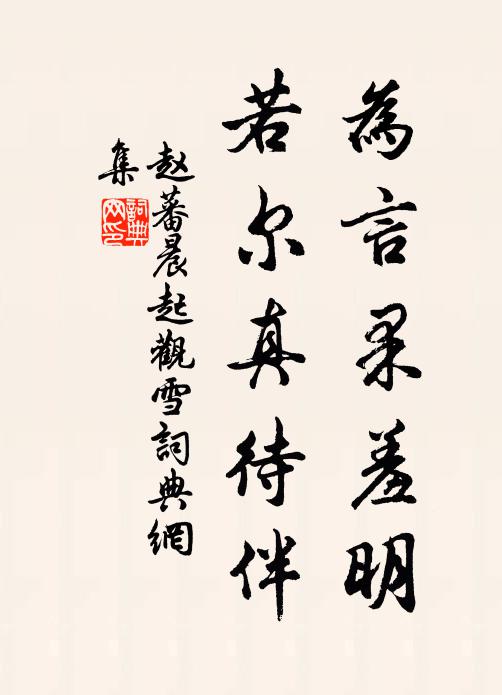 為言果羞明
若尔真待伴
赵蕃晨起觀雪詞典網
集
詞典
网印